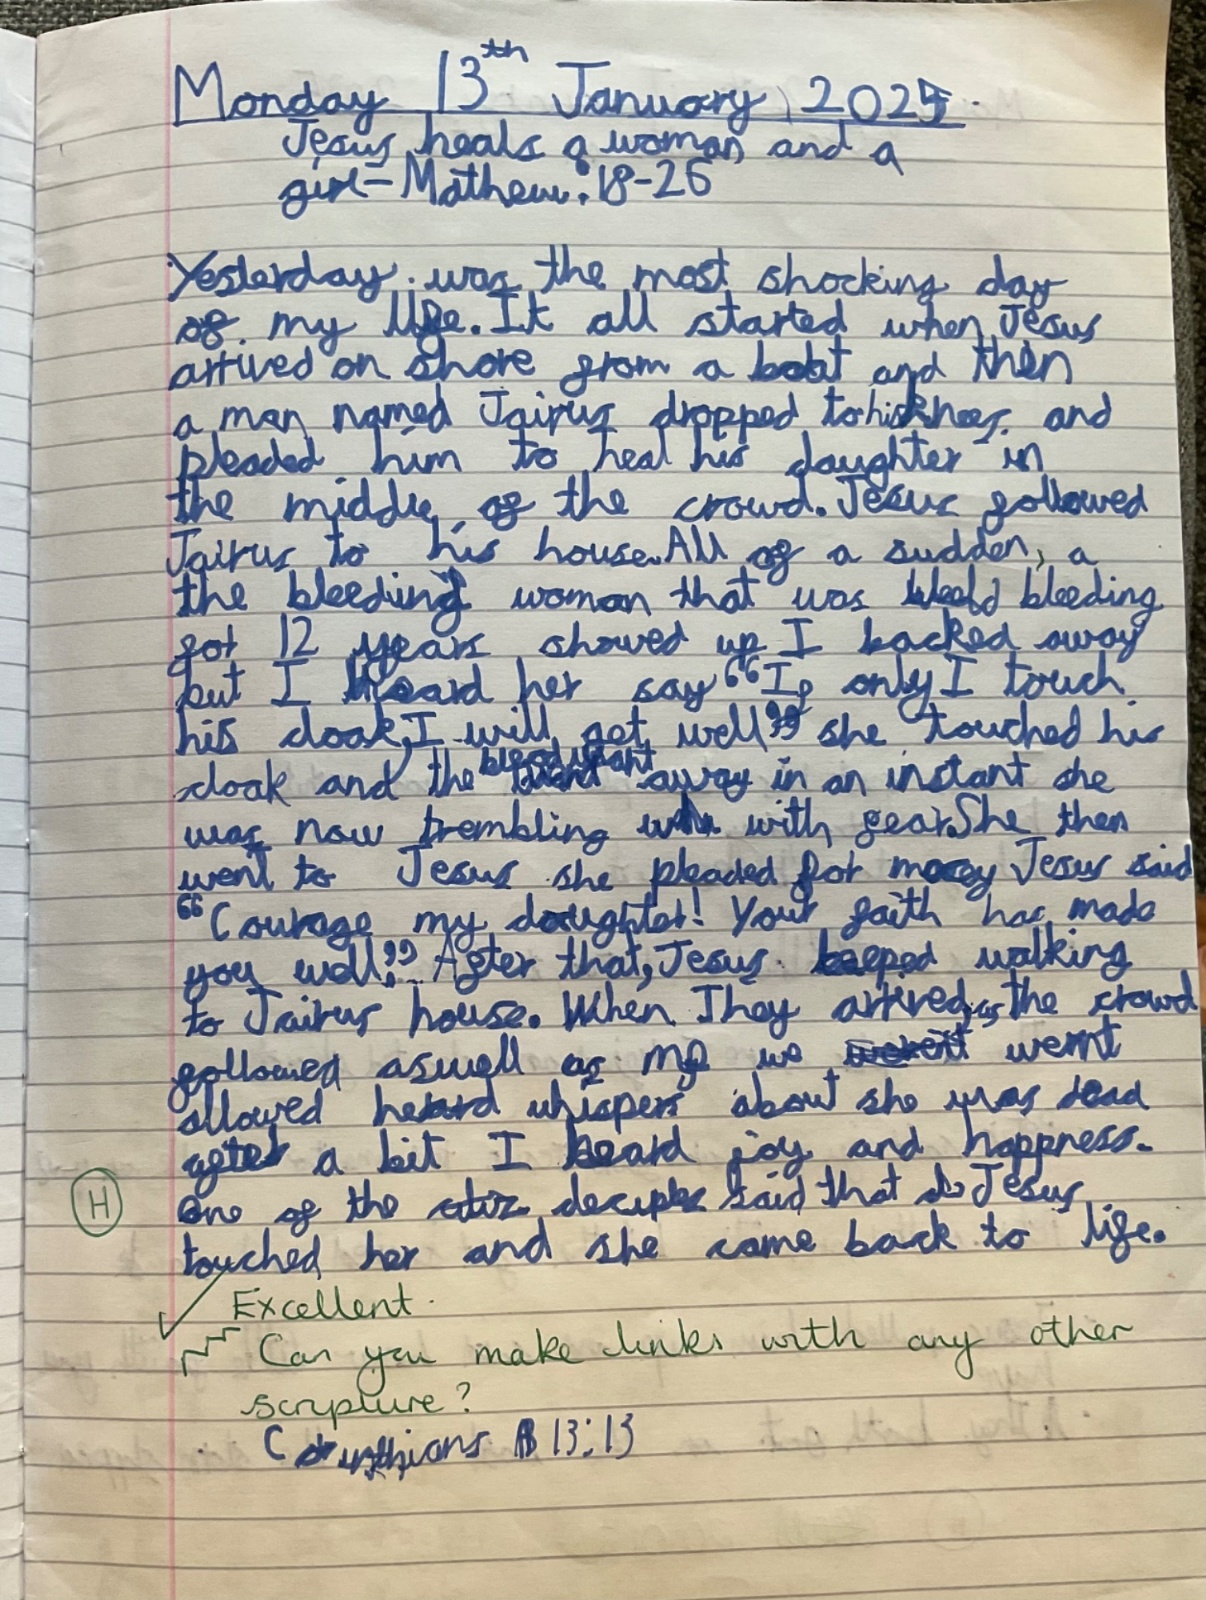 Monday 13th January, 2025.
Jesus heals a woman and a
girl-Mathew:18-26
Yesterday was the most shocking day
of my life. It all started when Jesus
arrived on shore from a boat and then
a man named Jairus dropped to his knees and
pleaded him to heal his daughter in
the middle of the crowd. Jesus followed
Jairus to his house. All of a sudden, a
the bleeding woman that was bleeding
for 12 years showed up I backed away
but I heard her say "If only I touch
his cloak, I will get well" she touched his
cloak and the blood went away in an instant she
was now trembling with fear. She then
went to Jesus she pleaded for mercy Jesus said
"Courage my daughter! Your faith has made
you well." After that, Jesus keeped walking
to Jairus house. When They arrived, as the crowd
followed aswell as me we wernt
allowed heard whispers about she was dead
after a bit I heard joy and happness.
One of the said that Jesus
touched her and she came back to life.
H
Excellent.
Can you make links with any other
scripture?
Corinthians 13:13